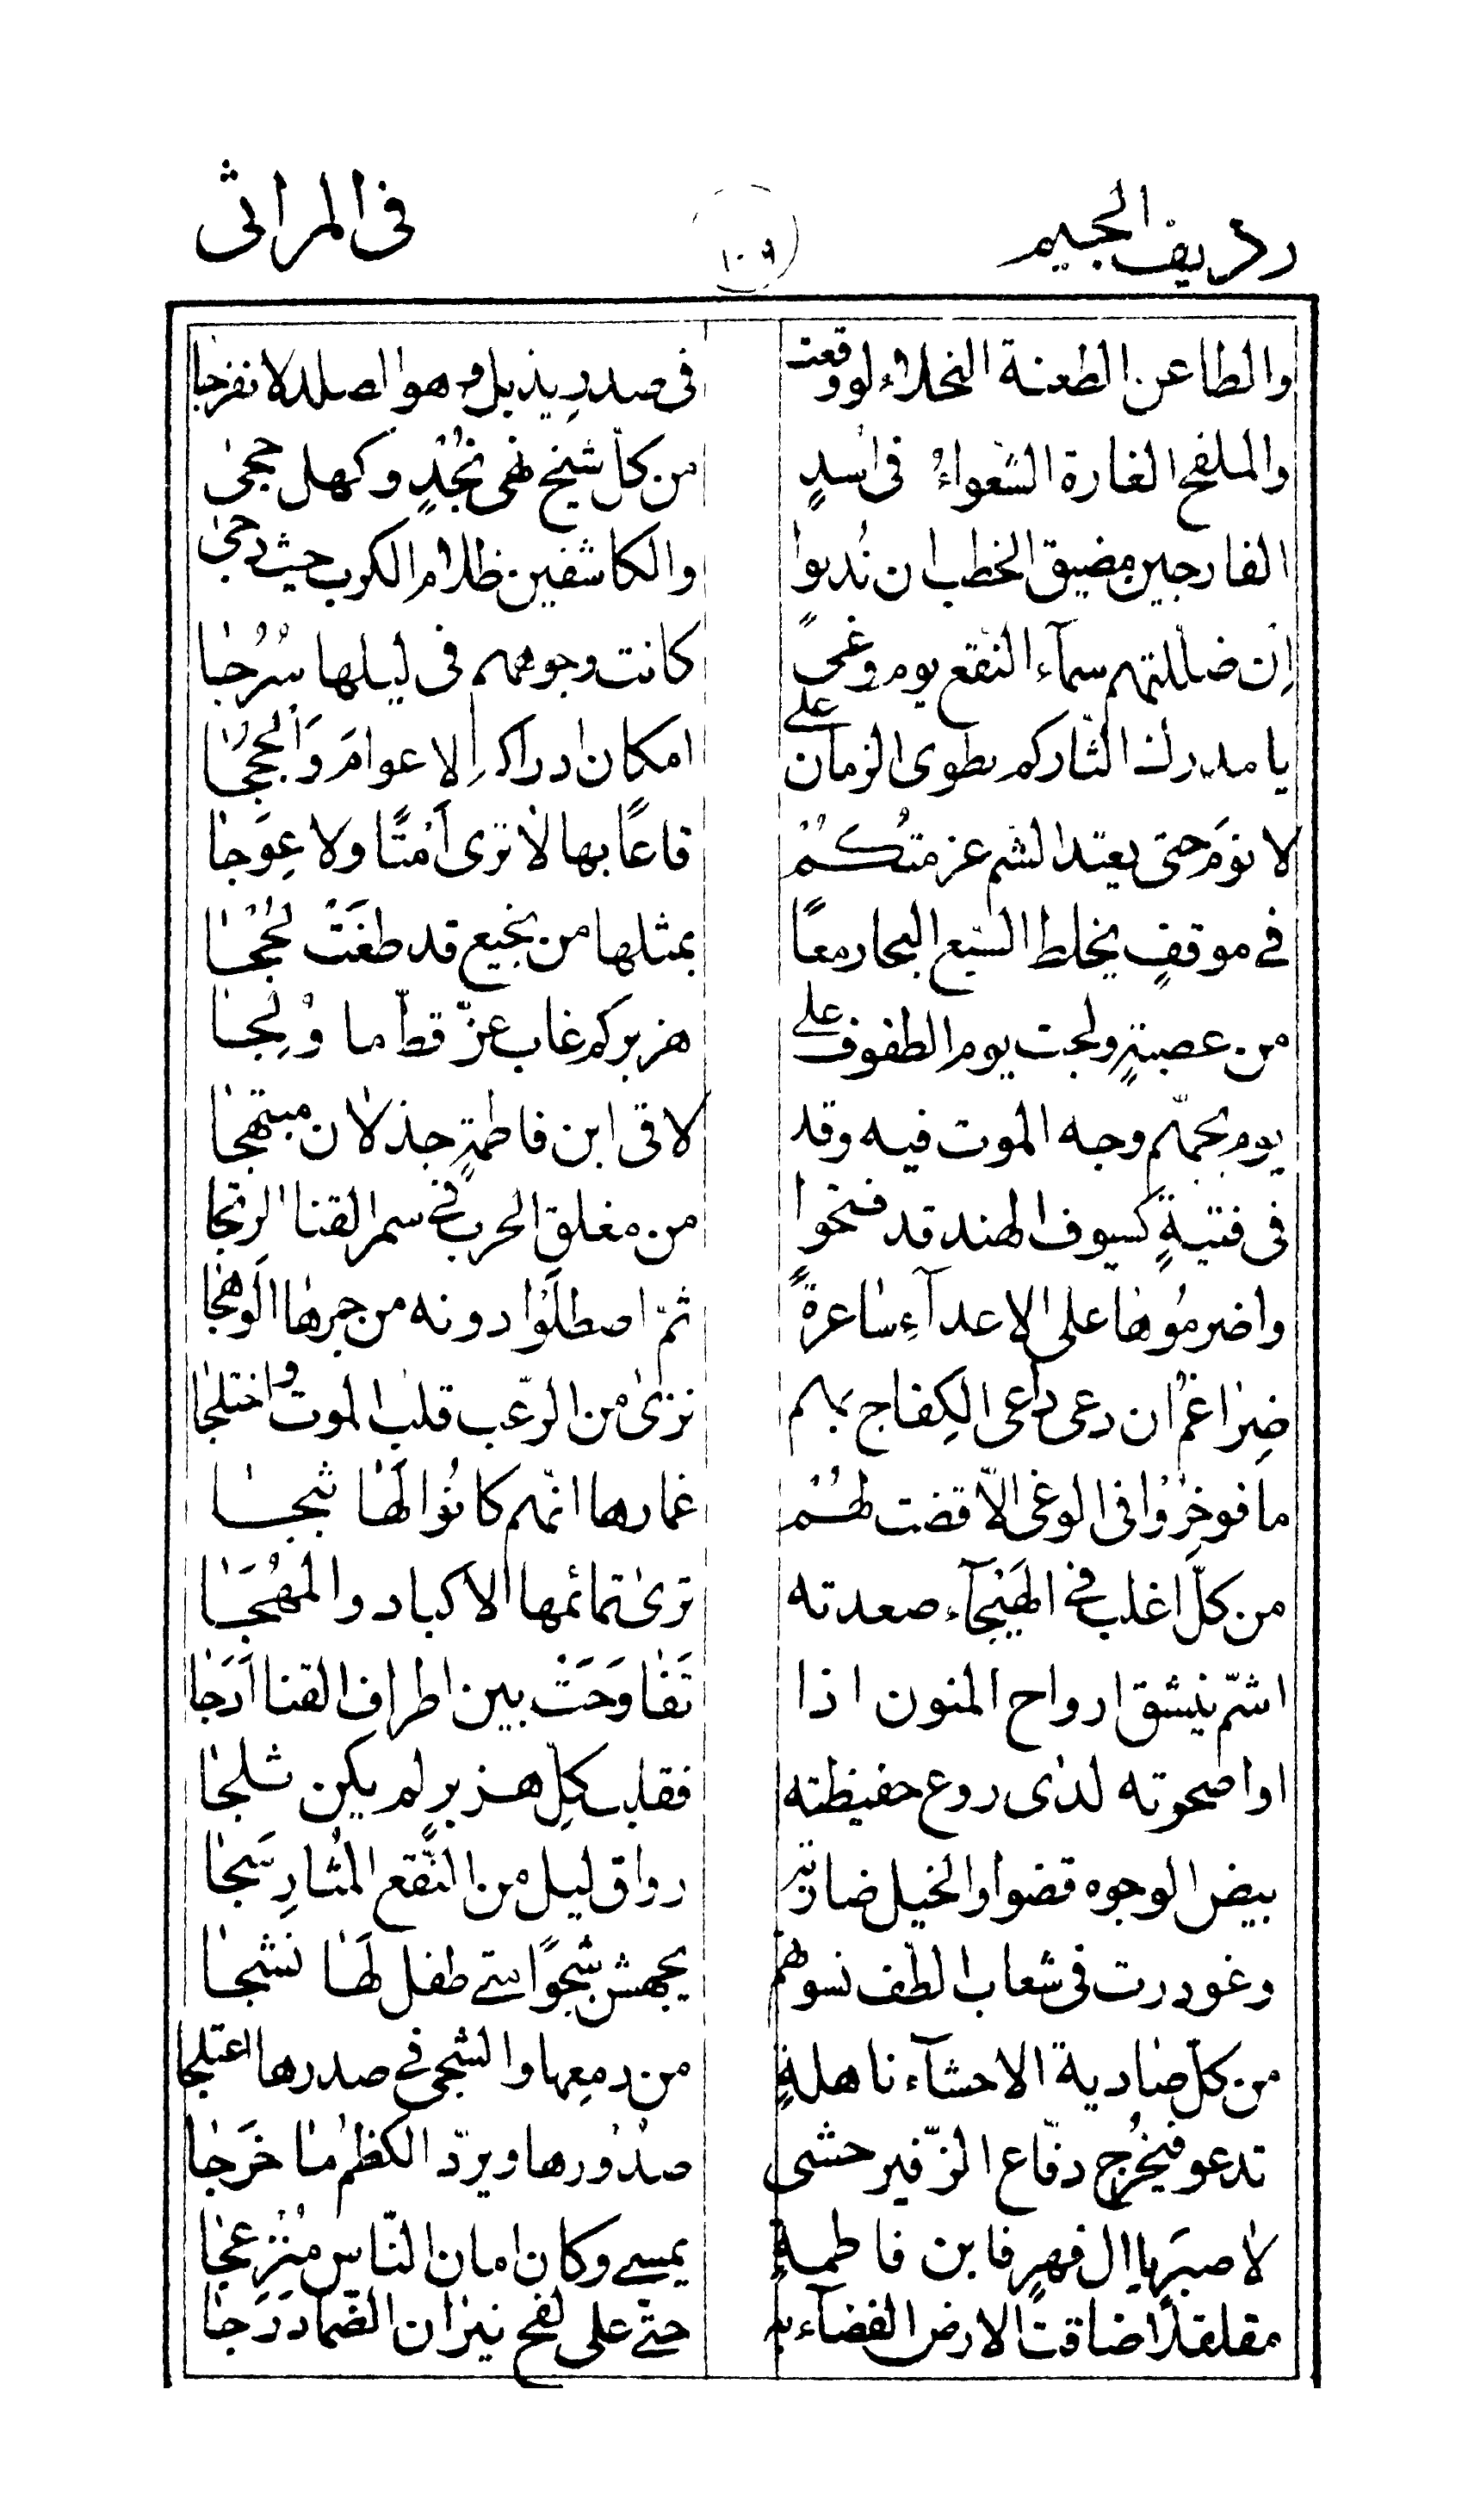 رديف الجيم ١٠٩ فى المراثى
والطاعن الطعنة النجلاء لو وقعت فى صدر يذبل وهو الصلد لانفرجا
والملقح الغارة الشعواءُ فى اسدٍ من كل شيخ نهى نجُدٍ وكهل حجى
الفارجين مضيق الخطب ان نُدبوا والكاشفين ظلام الكرب حيث دجى
اِن ضللتهم سمآء النقع يوم وغىً كانت وجوههم فى ليلها سُرُجا
يا مدرك الثار كم يطوى الزمان على امكان ادراكه الاعوامَ وَالحججَا
لا نومَ حتى يعتد الشم عزمتكُمْ قاعًا بها لا ترى اَمْتًا ولا عِوَجا
في موقفٍ يخلط السّبع البحار معًا بمثلها من نجيع قد طغَتْ لُججْا
من عصبةٍ ولجت يوم الطفوف على هزبركم غاب عزّ قطّ ما وُلِجا
يوم تجهّم وجه الموت فيه وقد لاقى ابن فاطمةٍ جذلان مبتهجا
فى فتيةٍ كسيوف الهند قد فتحوا من مغلق الحرب في سمر القنا الرتجا
واضرموُها على الاعدآءِ ساعرةً ثمّ اصطلَوْا دونه من جمرها الَوهجا
ضِراغمُ ان دعى داعى الكِفاح بهم نزى من الرّعب قلب الموتُ واختلجا
ما فوخرُوْا فى الوغى الاّ قضت لهُمْ غمارها انّهم كانُوا لَهَا ثبجا
من كلّ اغلب في الهَيْجآء صعدته ترى تمائمها الاكباد والمُهَجَا
اشمّ ينشق ارواح المنون اذا تَفَاوَحَتْ بين اطراف القنا اَرَجا
او اصحوته لدى روع حفيظته فقلب كلِ هزبرٍ لم يكن ثلجا
بيض الوجوه قضوا والخيل ضاربة رواق ليل من النّقع المُثارِ سَجا
وغودرت فى شعاب الطّف نسوتهم يجهش شجوًا متى طفل لَهَا نشجا
من كلّ صادية الاحشآء ناهلةٍ من دمعها والشجى في صدرها اعتلجا
تدعو فيخرُج دفّاع الزّفير حشى صدُورها ويردّ الكظم ما خَرَجا
لا صبرَ يا ال فهرٍ فابن فاطمةٍ يمسى وكان امان النّاس مُنْزعجا
مقلقلاً ضاقت الارض الفضآء به حتّى على لفح نيران الظّما دَرَجا